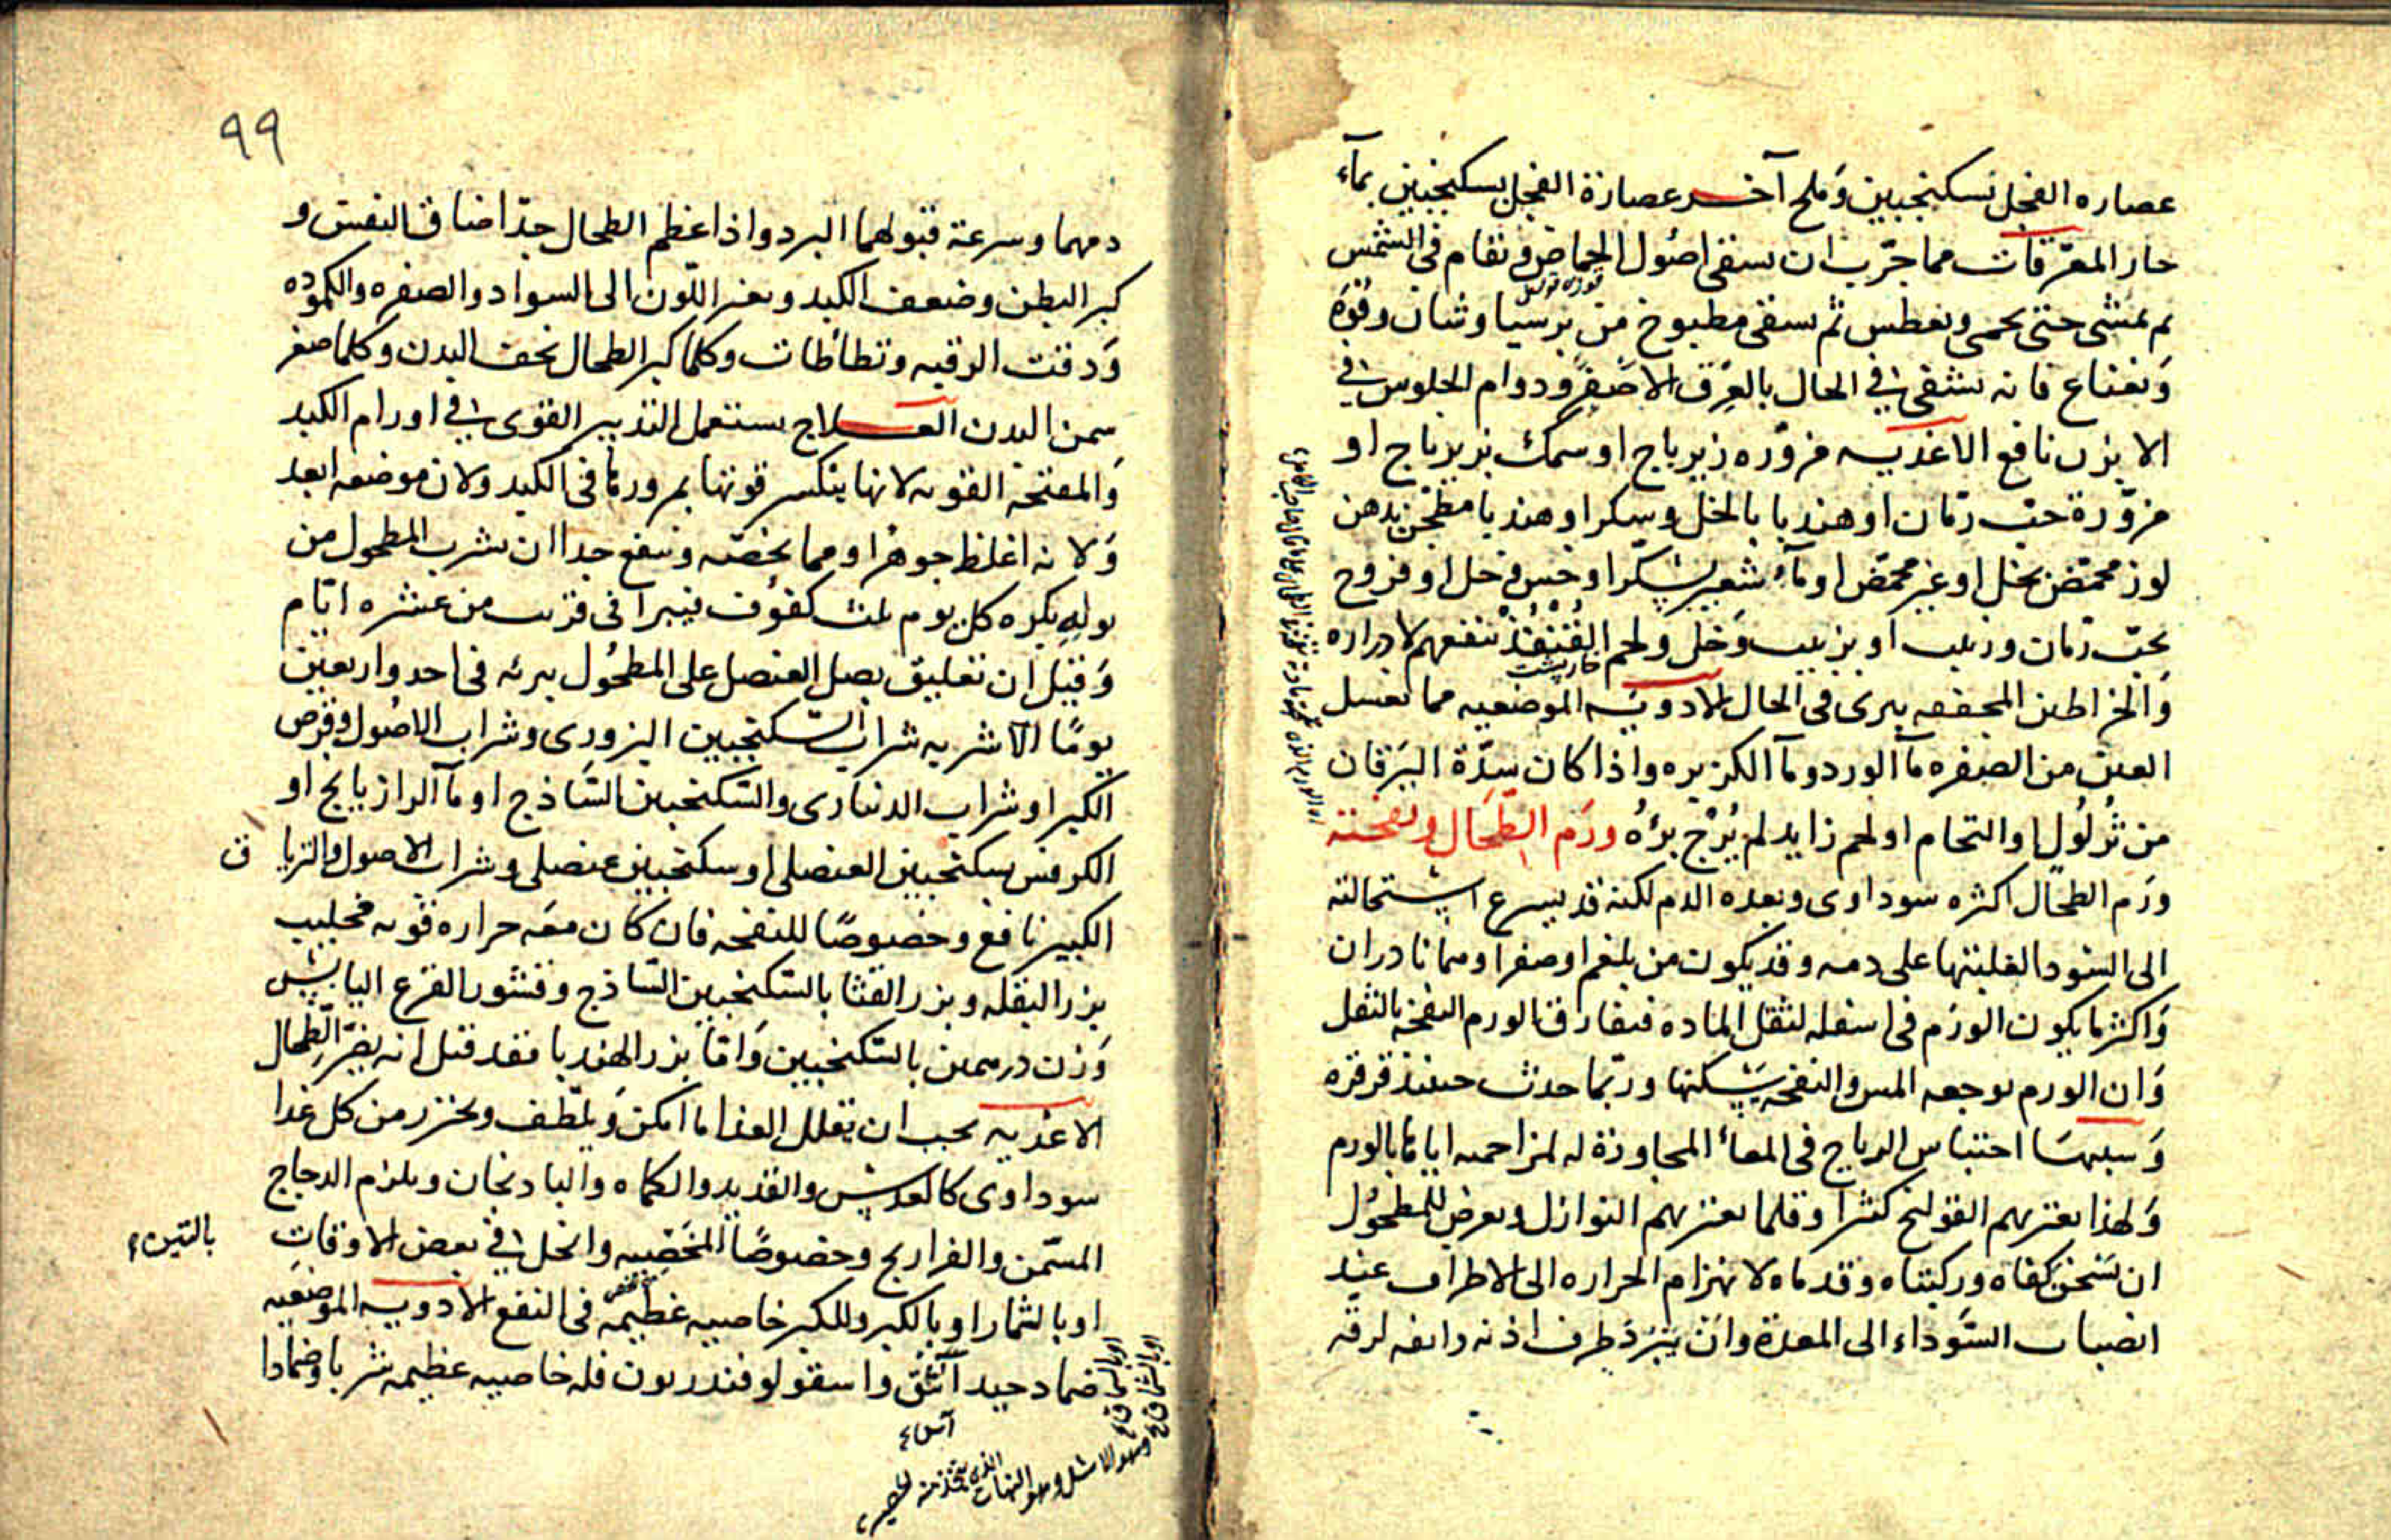 عصاره الفجل بسكنجبين وملح آخر عصارة الفجل بسكنجبين بمآء
حار المعرقات مما جرب ان يسقى اصول الحماض ويقام فى الشمس
ثم يمشى حتى يحمى ويعطس ثم يسقى مطبوخ من برسيا وشان وفوّه
ونعناع فانه يشفى فى الحال بالعرق الاصفر ودوام الجلوس فى
الابزن نافع الاغذيه مزوّره زيرباج او سمك بزيرباج او
مزوّرة حب رمان او هندبا بالخل وسكر او هندبا مطجن بدهن
لوز محمض بخل او غير محمض او مآء شعير بسكر او خس وخل او فروج
بحب رمان وزبيب او بزبيب وخل ولحم القُنْفُذ ينفعهم لادراره
خارپشت
والخراطين المجففه يبرى فى الحال الادويه الموضعيه مما يغسل
العين من الصفره مآ الورد ومآ الكزبره واذا كان سدّة اليرقان
من ثؤلول او التحام او لحم زايد لم يُرْج برؤه ورَم الطحَال ونفخته
ورَم الطحال اكثره سوداوى وبعده الدم لكنه قد يسرع استحالته
الى السودا لغلبتها على دمه وقد يكون من بلغم او صفرا وهما نادران
واكثر ما يكون الورَم فى اسفله لثقل الماده فيفارق الورم النفخة بالثقل
وان الورم يوجعه المس والنفخه يسكنها وربما حدث حينئذ قرقره
وسببها احتباس الرياح فى المعاء المجاورة له لمزاحمه اياها بالورم
ولهذا يعتريهم القولنج كثيرا وقلما يعتريهم النوازل ويعرض للمطحول
ان تسخن كفاه وركبتاه وقدماه لانهزام الحراره الى الاطراف عند
انصباب السوداء الى المعدة وان يبرد طرف اذنه وانفه لرقه
٩٩
دمهما وسرعة قبولهما البرد واذا عظم الطحال جدّا ضاق النفس و
كبر البطن وضعف الكبد وتغير اللون الى السواد والصفره والكموده
ودقت الرقبه وتطأطأت وكلما كبر الطحال نحف البدن وكلما صغر
سمن البدن العلاج يستعمل التدبير القوى فى اورام الكبد
والمفتحة القويه لانها ينكسر قوتها بمرورها فى الكبد ولان موضعه ابعد
ولانه اغلظ جوهرا ومما يخصّه وينفع جدا ان يشرب المطحول من
بوله بكره كل يوم ثلث كفوف فيبرا فى قرب من عشره ايام
وقيل ان تعليق بصل العنصل على المطحُول يبرئه فى احد واربعين
يومًا الاشربه شراب السكنجبين البزورى وشراب الاصُول وقرص
الكبر او شراب الدينارى والسكنجبين الساذج او مآ الرازيانج او
الكرفس بسكنجبين العنصلى او سكنجبين عنصلى وشراب الاصول والتريا ق
الكبير نافع وخصوصًا للنفخه فان كان معه حراره قويه فحليب
بزر البقله وبزر القثا بالسكنجبين الساذج وقشور القرع اليابس
وزن درهمين بالسكنجبين وَامّا بزر الهندبا فقد قيل انه يضرّ الطحال
الاغذيه يجب ان يقلل الغذا ما امكن ويلطف ويحترز من كل غذا
سوداوى كالعدس والقديد والكماه والبادنجان ويلزم الدجاج
المسمن والفراريج وخصوصًا المخصيه والخل فى بعض الاوقات
بالتين
او بالثمار او بالكبر وللكبر خاصيه عظيمه فى النفع الادويه الموضعيه
ضماد جيد اشق واسقولوقندريون فله خاصيه عظيمه شربا وضمادا